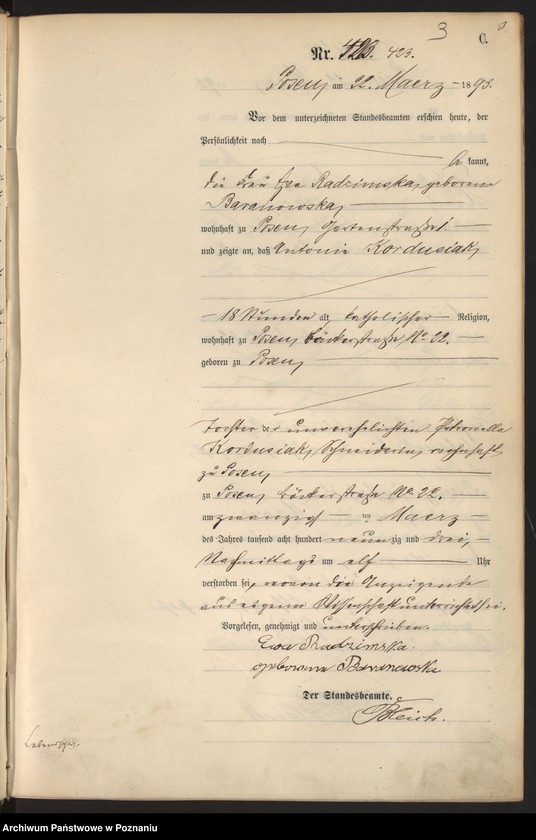 3
C.
Nr. 423.
Posen, am 22. Maerz 1893.
Vor dem unterzeichneten Standesbeamten erschien heute, der
Persönlichkeit nach
kannt,
die Frau Eva Radzimska, geborene
Baranowska,
wohnhaft zu Posen, Gartenstraße
und zeigte an, daß Antonie Kordusiak,
18 Stunden alt, katholischer Religion,
wohnhaft zu Posen, Bäckerstraße No 22.
geboren zu Posen,
Tochter der unverehelichten Petronella
Kordusiak, Schneiderin, wohnhaft
zu Posen,
zu Posen, Bäckerstraße No 22.
am zwanzigsten Maerz
des Jahres tausend acht hundert neunzig und drei,
Nachmittags um elf Uhr
verstorben sei, wovon die Anzeigende
aus eigener Wissenschaft unterrichtet sei.
Vorgelesen, genehmigt und unterschrieben.
Ewa Radzimska
geborene Baranowska
Der Standesbeamte.
Archiwum Państwowe w Poznaniu